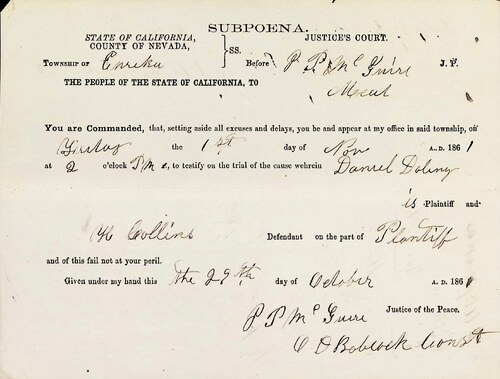 SUBPOENA.
STATE OF CALIFORNIA, } SS. JUSTICE'S COURT.
COUNTY OF NEVADA,
TOWNSHIP OF Eureka Before P P Mc Guire J. P.
THE PEOPLE OF THE STATE OF CALIFORNIA, TO
You are Commanded, that, setting aside all excuses and delays, you be and appear at my office in said township, on
Friday the 1st day of Nov A. D. 1861
at 2 o'clock P M., to testify on the trial of the cause wehrein Daniel
is Plaintiff and
Collins Defendant on the part of Plantiff
and of this fail not at your peril.
Given under my hand this the 29th day of October A. D. 1861
P P Mc Guire Justice of the Peace.
C O Babcock Const